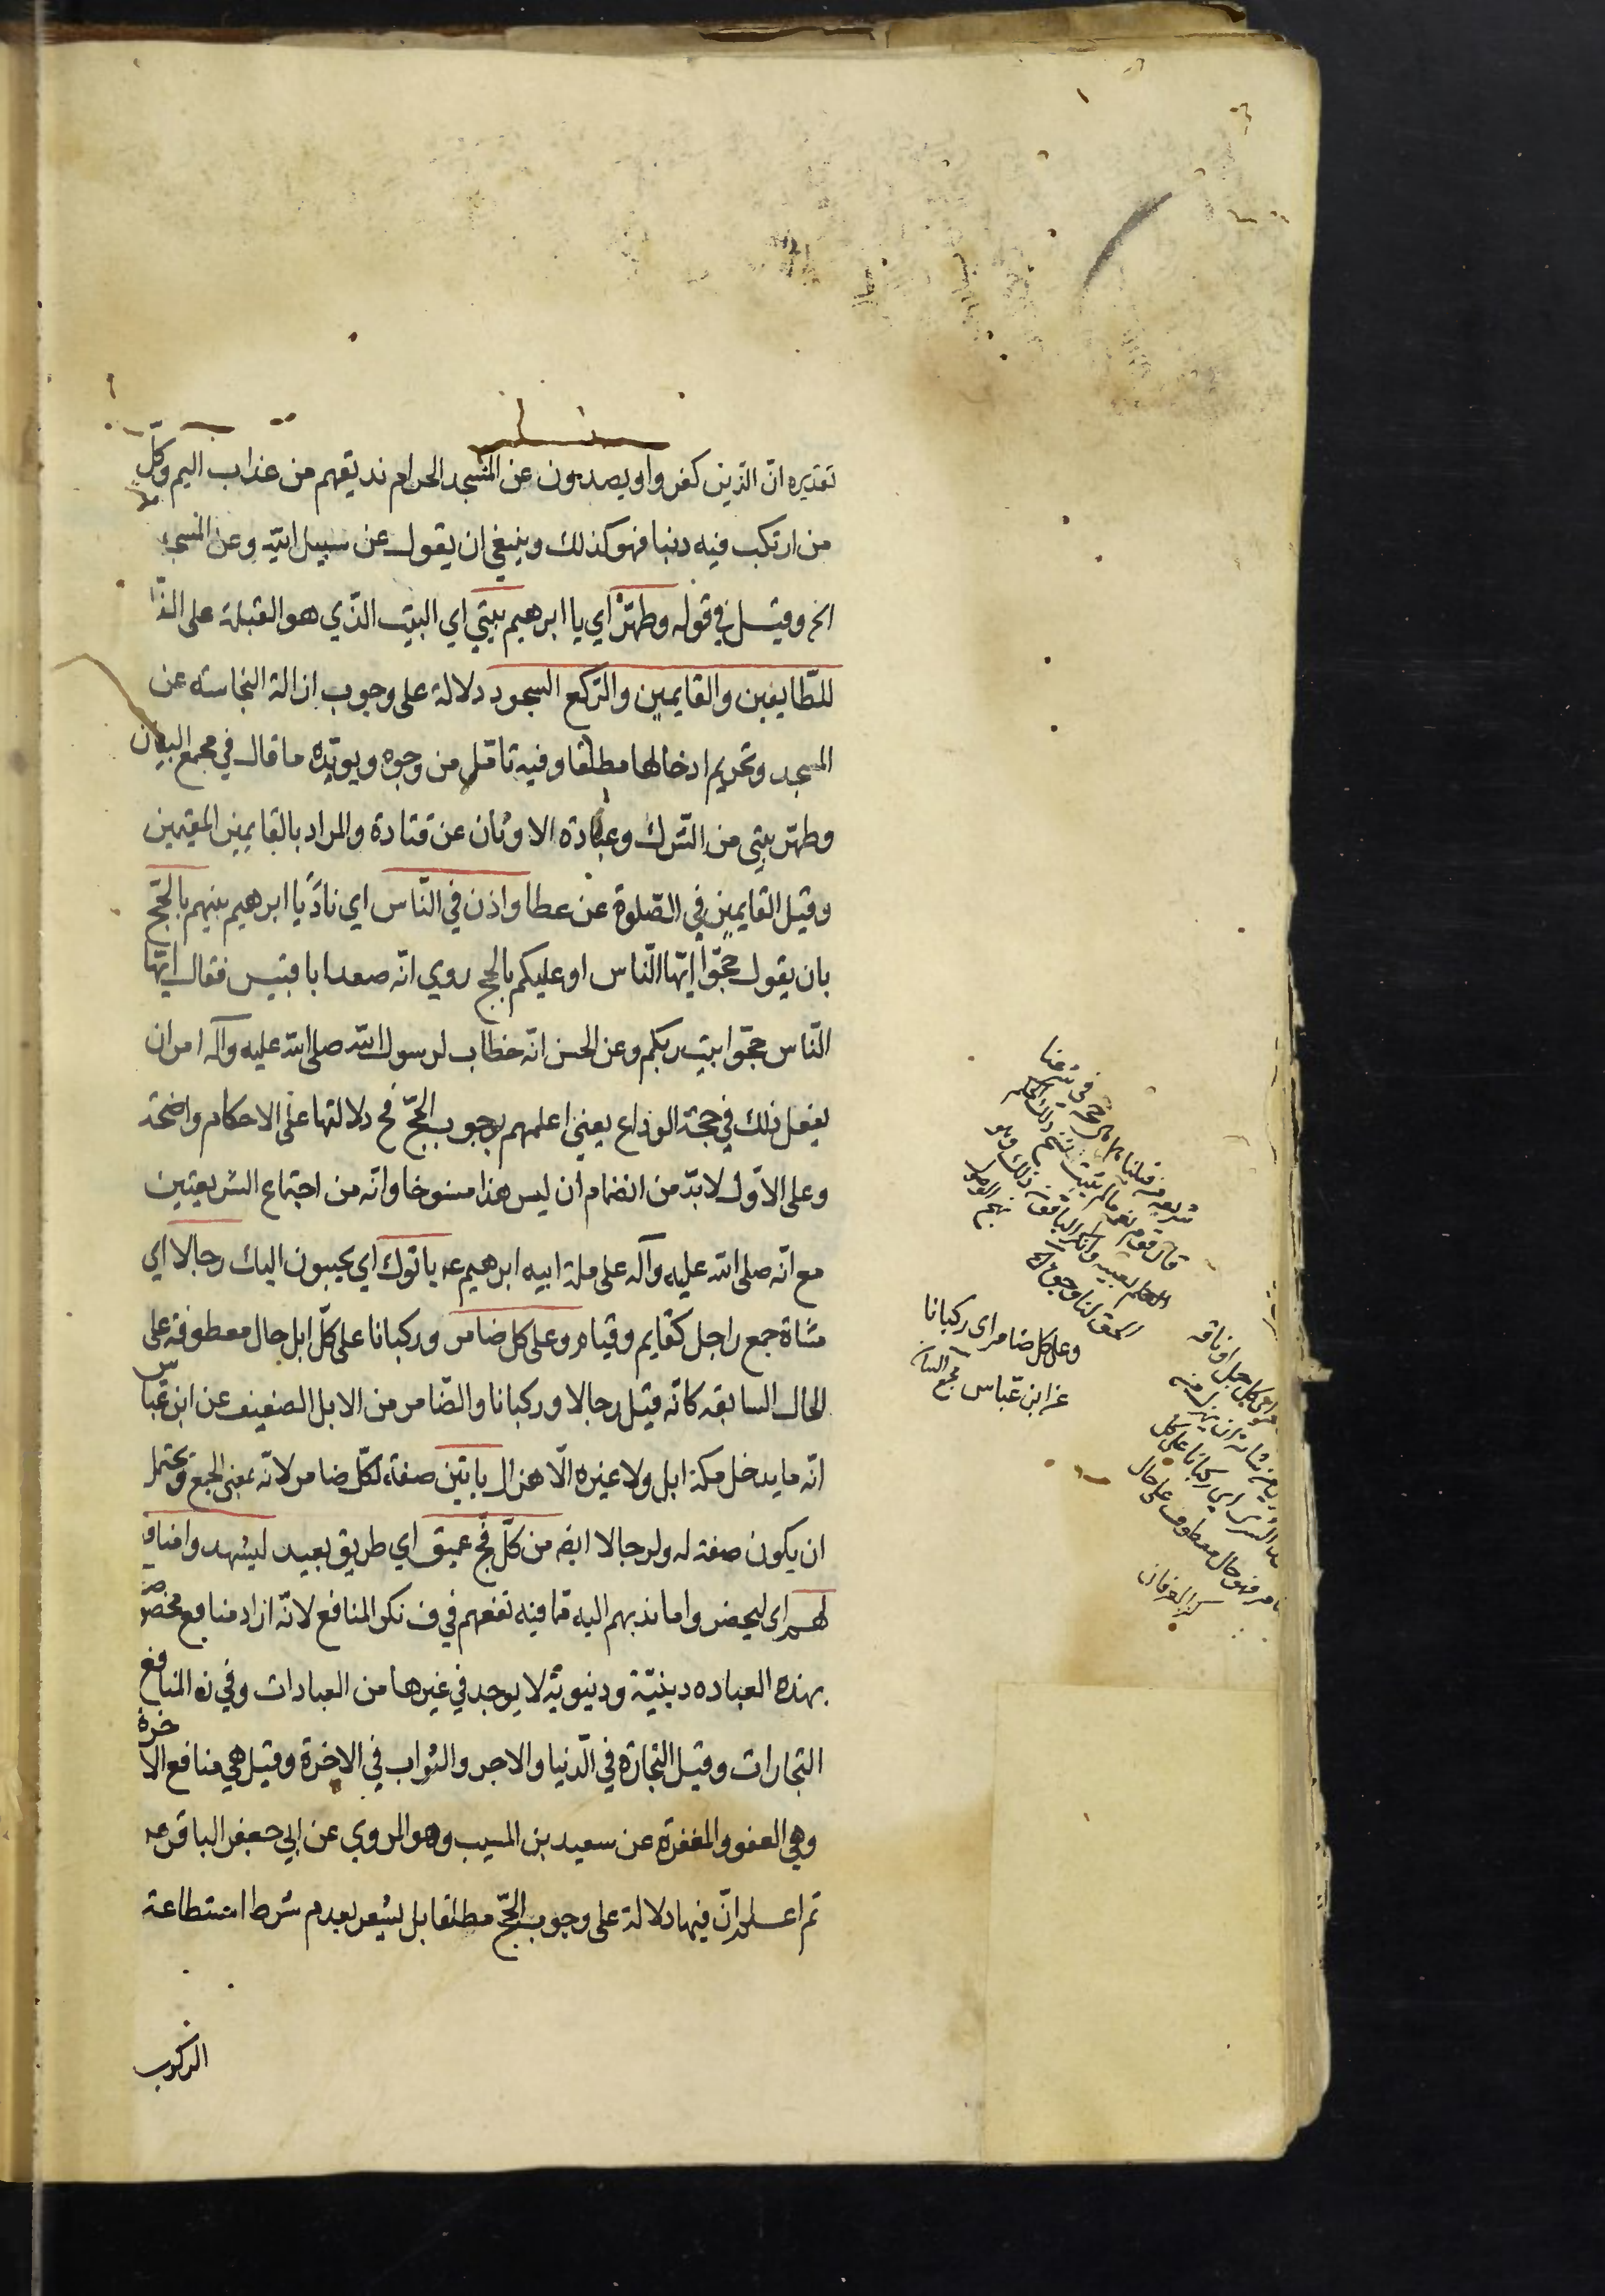 تقديره انّ الذين كفروا ويصدون عن المسجد الحرام نذيقهم من عذاب اليم وكلّ
من ارتكب فيه ذنبا فهو كذلك وينبغي ان يقول عن سبيل الله وعن المسجد
الخ وقيل في قوله وطهّر اي يا ابرهيم بيتي اي البيت الذي هو القبلة على
للطّايفين والقايمين والرّكع السجود دلالة على وجوب ازالة النجاسته عن
المسجد وتحريم ادخالها مطلقا وفيه تامّل من وجوه ويويّده ما قال في مجمع البيان
وطهّر بيتي من الشّرك وعبادة الاوثان عن قتادة والمراد بالقايمين المقيمين
وقيل القايمين في الصّلوة عن عطا واذن في النّاس اي نادِ يا ابرهيم بينهم بالحّج
بان يقول حجّوا ايّها النّاس او عليكم بالحج روي انّه صعد ابا قبيس فقال ايّها
النّاس حجّوا بيت ربكم وعن الحسن انّه خطاب لرسول الله صلى الله عليه وآله امر ان
يفعل ذلك في حجّة الوداع يعني اعلمهم بوجوب الحجّ فح دلالتها على الاحكام واضحة
وعلى الاوّل لا بدّ من انضمام ان ليس هذا منسوخا وانّه من اجتماع الشريعتين
مع انّه صلى الله عليه وآله على ملة ابيه ابرهيم عه ياتوك اي يجيبون اليك رجالا اي
مشاة جمع راجل كقايم وقيام وعلى كل ضامر وركبانا على كلّ ابل حال معطوفة على
الحال السابقه كانّه قيل رجالا وركبانا والضّامر من الابل الضعيف عن ابن عّباس
انّه ما يدخل مكة ابل ولا غيره الّا هزال ياتين صفة لكلّ ضامر لانّه بمعنى الجمع ويحتمل
ان يكون صفة له ولرجالا ايضه من كلّ فجّ عميق اي طريق بعيد ليشهدوا منافع
لهم اي ليحضروا ما ندبهم اليه ممّا فيه نفعهم في ف نكر المنافع لانّه اراد منافع مخصوصة
بهذه العباده دينيّة ودنيويّة لا يوجد في غيرها من العبادات وفي ن المنافع
التجارات وقيل التجارة في الدّنيا والاجر والثواب في الاخرة وقيل هي منافع الاخرة
وهي العفو والمغفرة عن سعيد بن المسيب وهو المروي عن ابي جعفر الباقر عه
ثم اعلم انّ فيها دلالة على وجوب الحجّ مطلقا بل يشعر بعدم شرط استطاعة
الركوب
وعلى كل ضامر اى ركبانا
عن ابن عّباس مجمع البيان
كنز العرفان